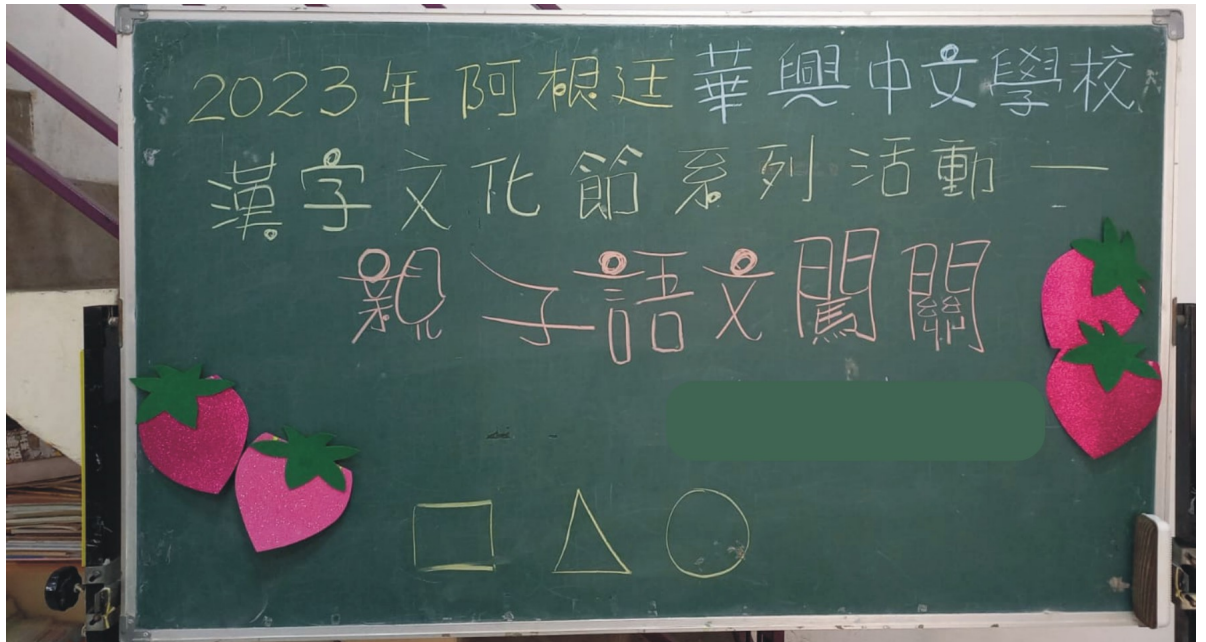 2023年阿根廷華興中文學校
漢字文化節系列活動一
親子語文闖關